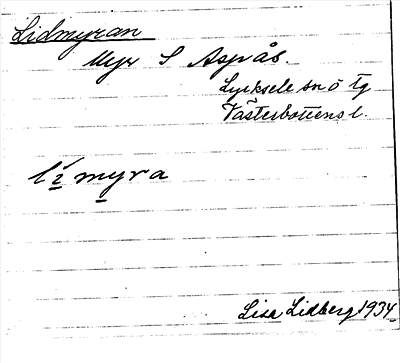 Lidmyran
Myr S Aspås.
Lycksele sn o tg
Västerbottens l.
li myra
Lisa Lidberg 1934